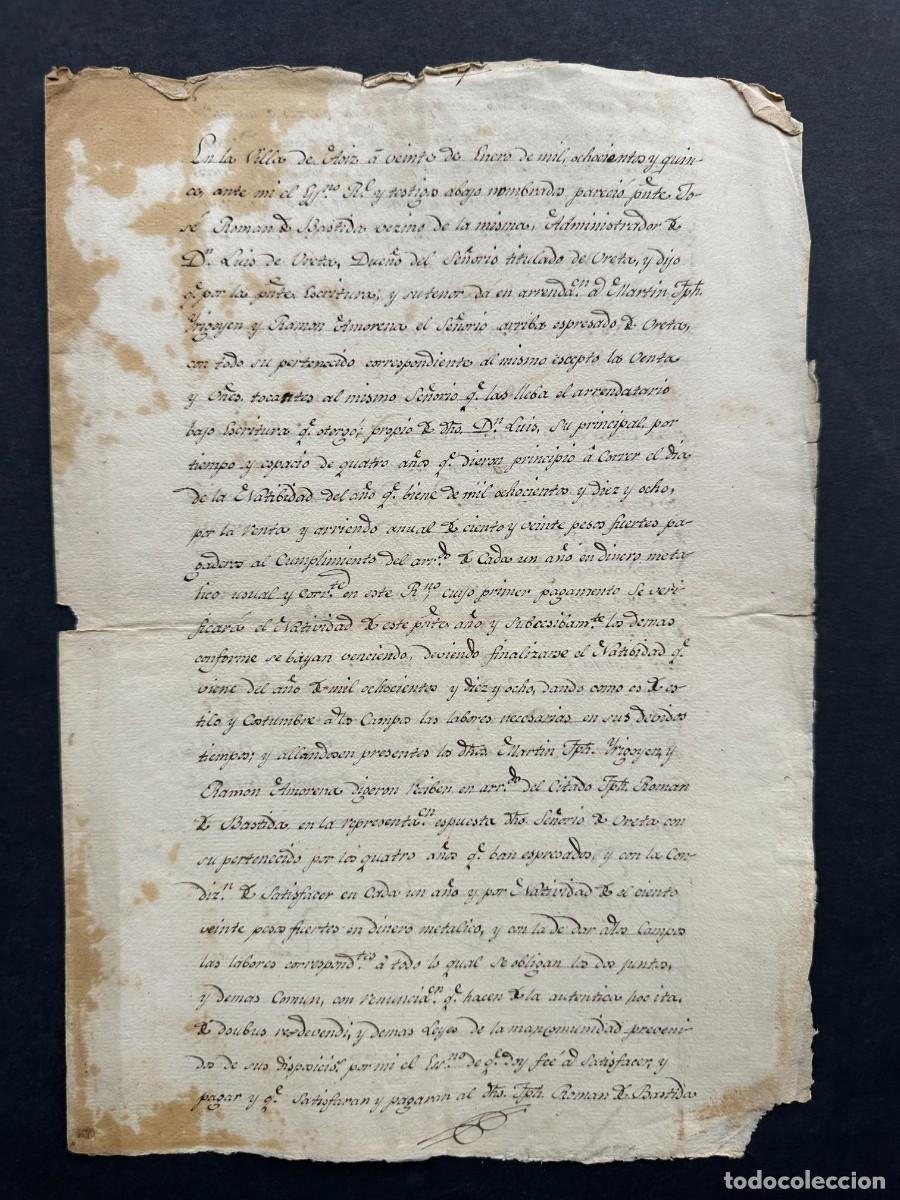 En la Villa de Aoiz â veinte de Enero de mil, ochocientos y quin-
ce, ante mi el Es.no R.l y testigos abajo nombrados pareció pnte Jo-
sé Roman de Bastida vezino de la misma, Administrador de
D.n Luis de Oreta, Dueño del Señorio titulado de Oreta, y dijo
q.e por la pnte Escritura, y su tenor da en arrenda.cn â Martin Jph.
Yrigoyen y Ramon Amorena el Señorio arriba espresado de Oreta,
con todo su pertenecido correspondiente al mismo escepto la Venta
y tocantes al mismo Señorio q.e las lleba el arrendatario
bajo Escritura q.e otorgó, propio de dho. D.n Luis, su principal, por
tiempo y espacio de quatro años q.e dieron principio â correr el dia
de la Natibidad del año q.e biene de mil ochocientos y diez y ocho,
por la renta y arriendo anual de ciento y veinte pesos fuertes pa-
gaderos al Cumplimiento del arr.do de Cada un año en dinero meta-
lico usual y Corr.te en este R.no, cuyo primer pagamento se veri-
ficará el Natividad de este pnte año y subcesibam.te los demas
conforme se bayan venciendo, deviendo finalizarse el Natibidad q.e
viene del año de mil ochocientos y diez y ocho, dando como es de es-
tilo y Costumbre alos Campos las labores necesarias en sus debidos
tiempos; y allandosen presentes los dhos Martin Jph. Yrigoyen, y
Ramon Amorena digeron reciben en arr.do del Citado Jph. Roman
de Bastida, en la representa.cn espuesta dho. Señorio de Oreta con
su pertenecido por los quatro años q.e ban espresados, y con la Con-
diz.n de Satisfacer en Cada un año y por Natividad de el ciento
veinte pesos fuertes en dinero metalico, y con la de dar alos Campos
las labores correspond.tes â todo lo qual se obligan los dos juntos,
y demas Comun, con renuncia.cn q.e hacen de la autentica hoc ita,
de doubus res devendi, y demas Leyes de la mancomunidad preveni-
dos de sus disposicio.s por mi el Es.no de q.e doy feé âd Satisfacer, y
pagar y q.e Satisfaran y pagaran al dho. Jph. Roman de Bastida
todocoleccion